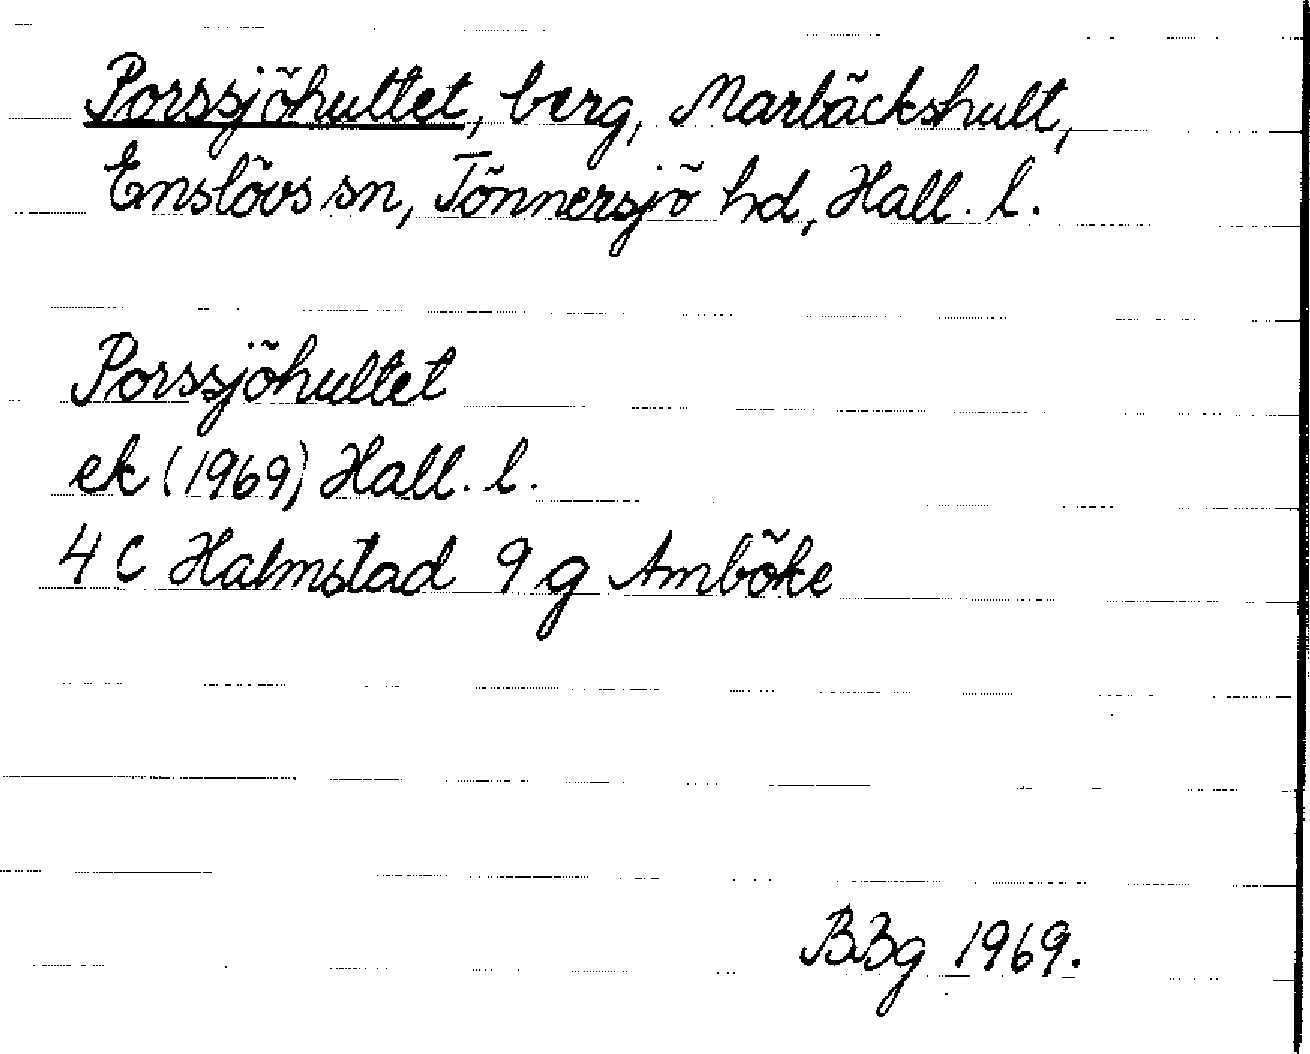 Porssjöhultet, berg, Marbäckshult,
Enslövs sn, Tönnersjö hd, Hall. l.
Porssjöhultet
ek (1969) Hall. l.
4 C Halmstad 9 g Amböke
BBg 1969.